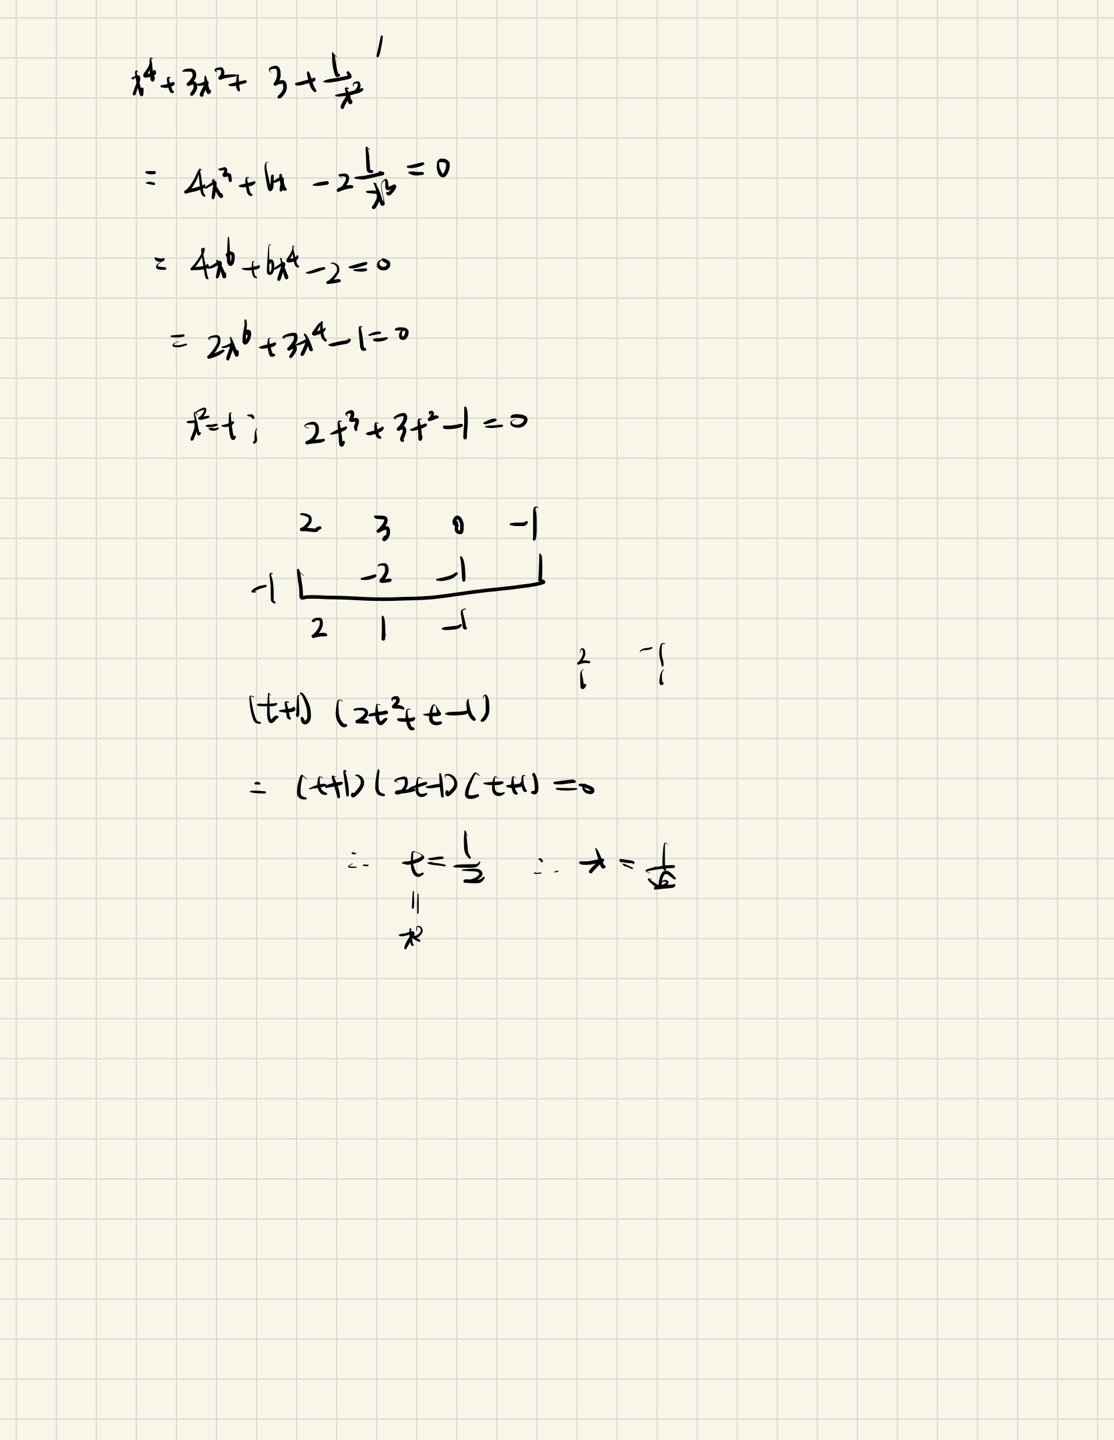 x⁴+3x²+ 3+1/x² ′
= 4x³+6x -2 1/x³ = 0
= 4x⁶+6x⁴-2=0
= 2x⁶+3x⁴-1=0
x²=t ; 2t³+3t²-1=0
2 3 0 -1
-1 -2 -1 1
2 1 -1
2 -1
1 1
(t+1) (2t²+t-1)
= (t+1)(2t-1)(t+1) =0
∴ t=1/2 ∴ x = 1/√2
=
x²